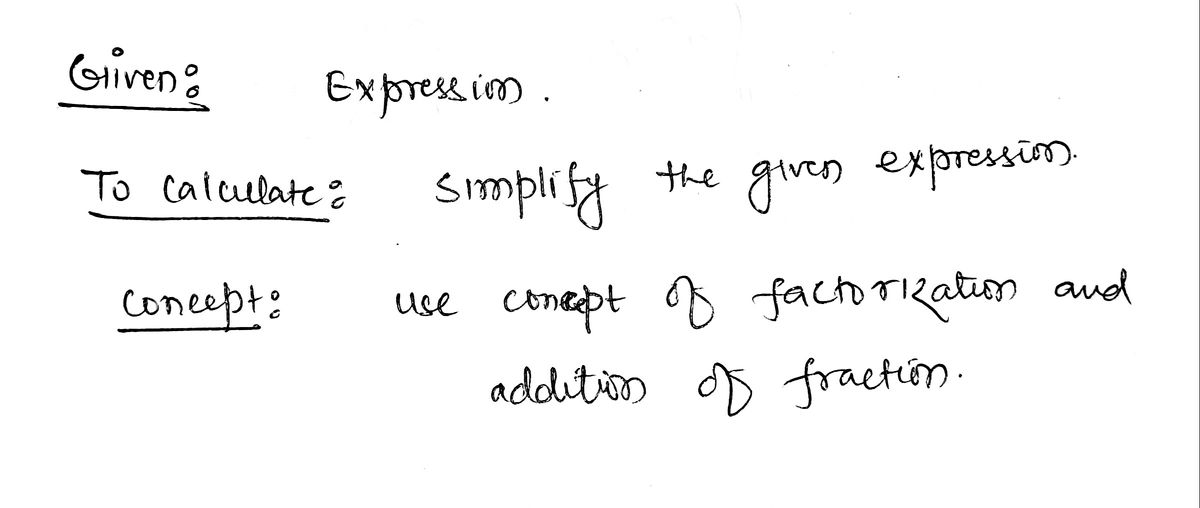 Given: Expression.
To calculate: simplify the given expression.
concept: use concept of factorization and
addition of fraction.